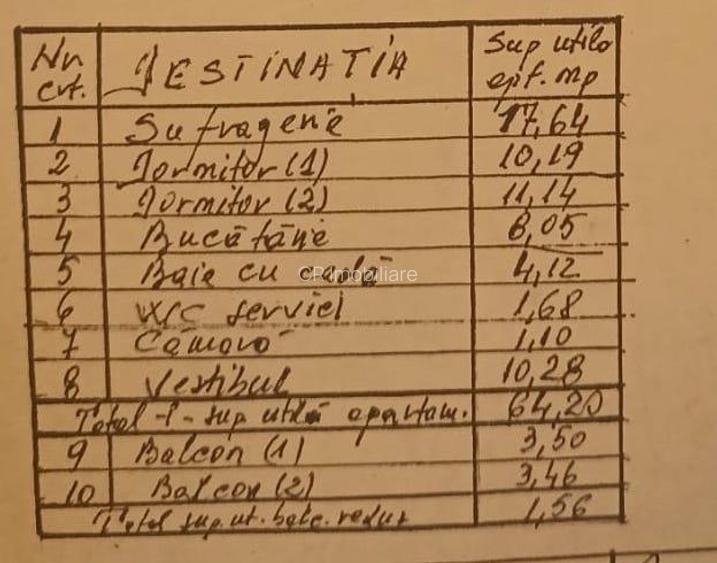 Nr crt. DESTINATIA Sup utila apt. mp
1 Sufragerie 17,64
2 Dormitor (1) 10,19
3 Dormitor (2) 11,14
4 Bucătărie 8,05
5 Baie cu cadă 4,12
CP Imobiliare
6 W/C servici 1,68
7 Cămară 1,10
8 Vestibul 10,28
Total -1- sup utilă apartam. 64,20
9 Balcon (1) 3,50
10 Balcon (2) 3,46
Total sup. ut. balc. redus 1,56